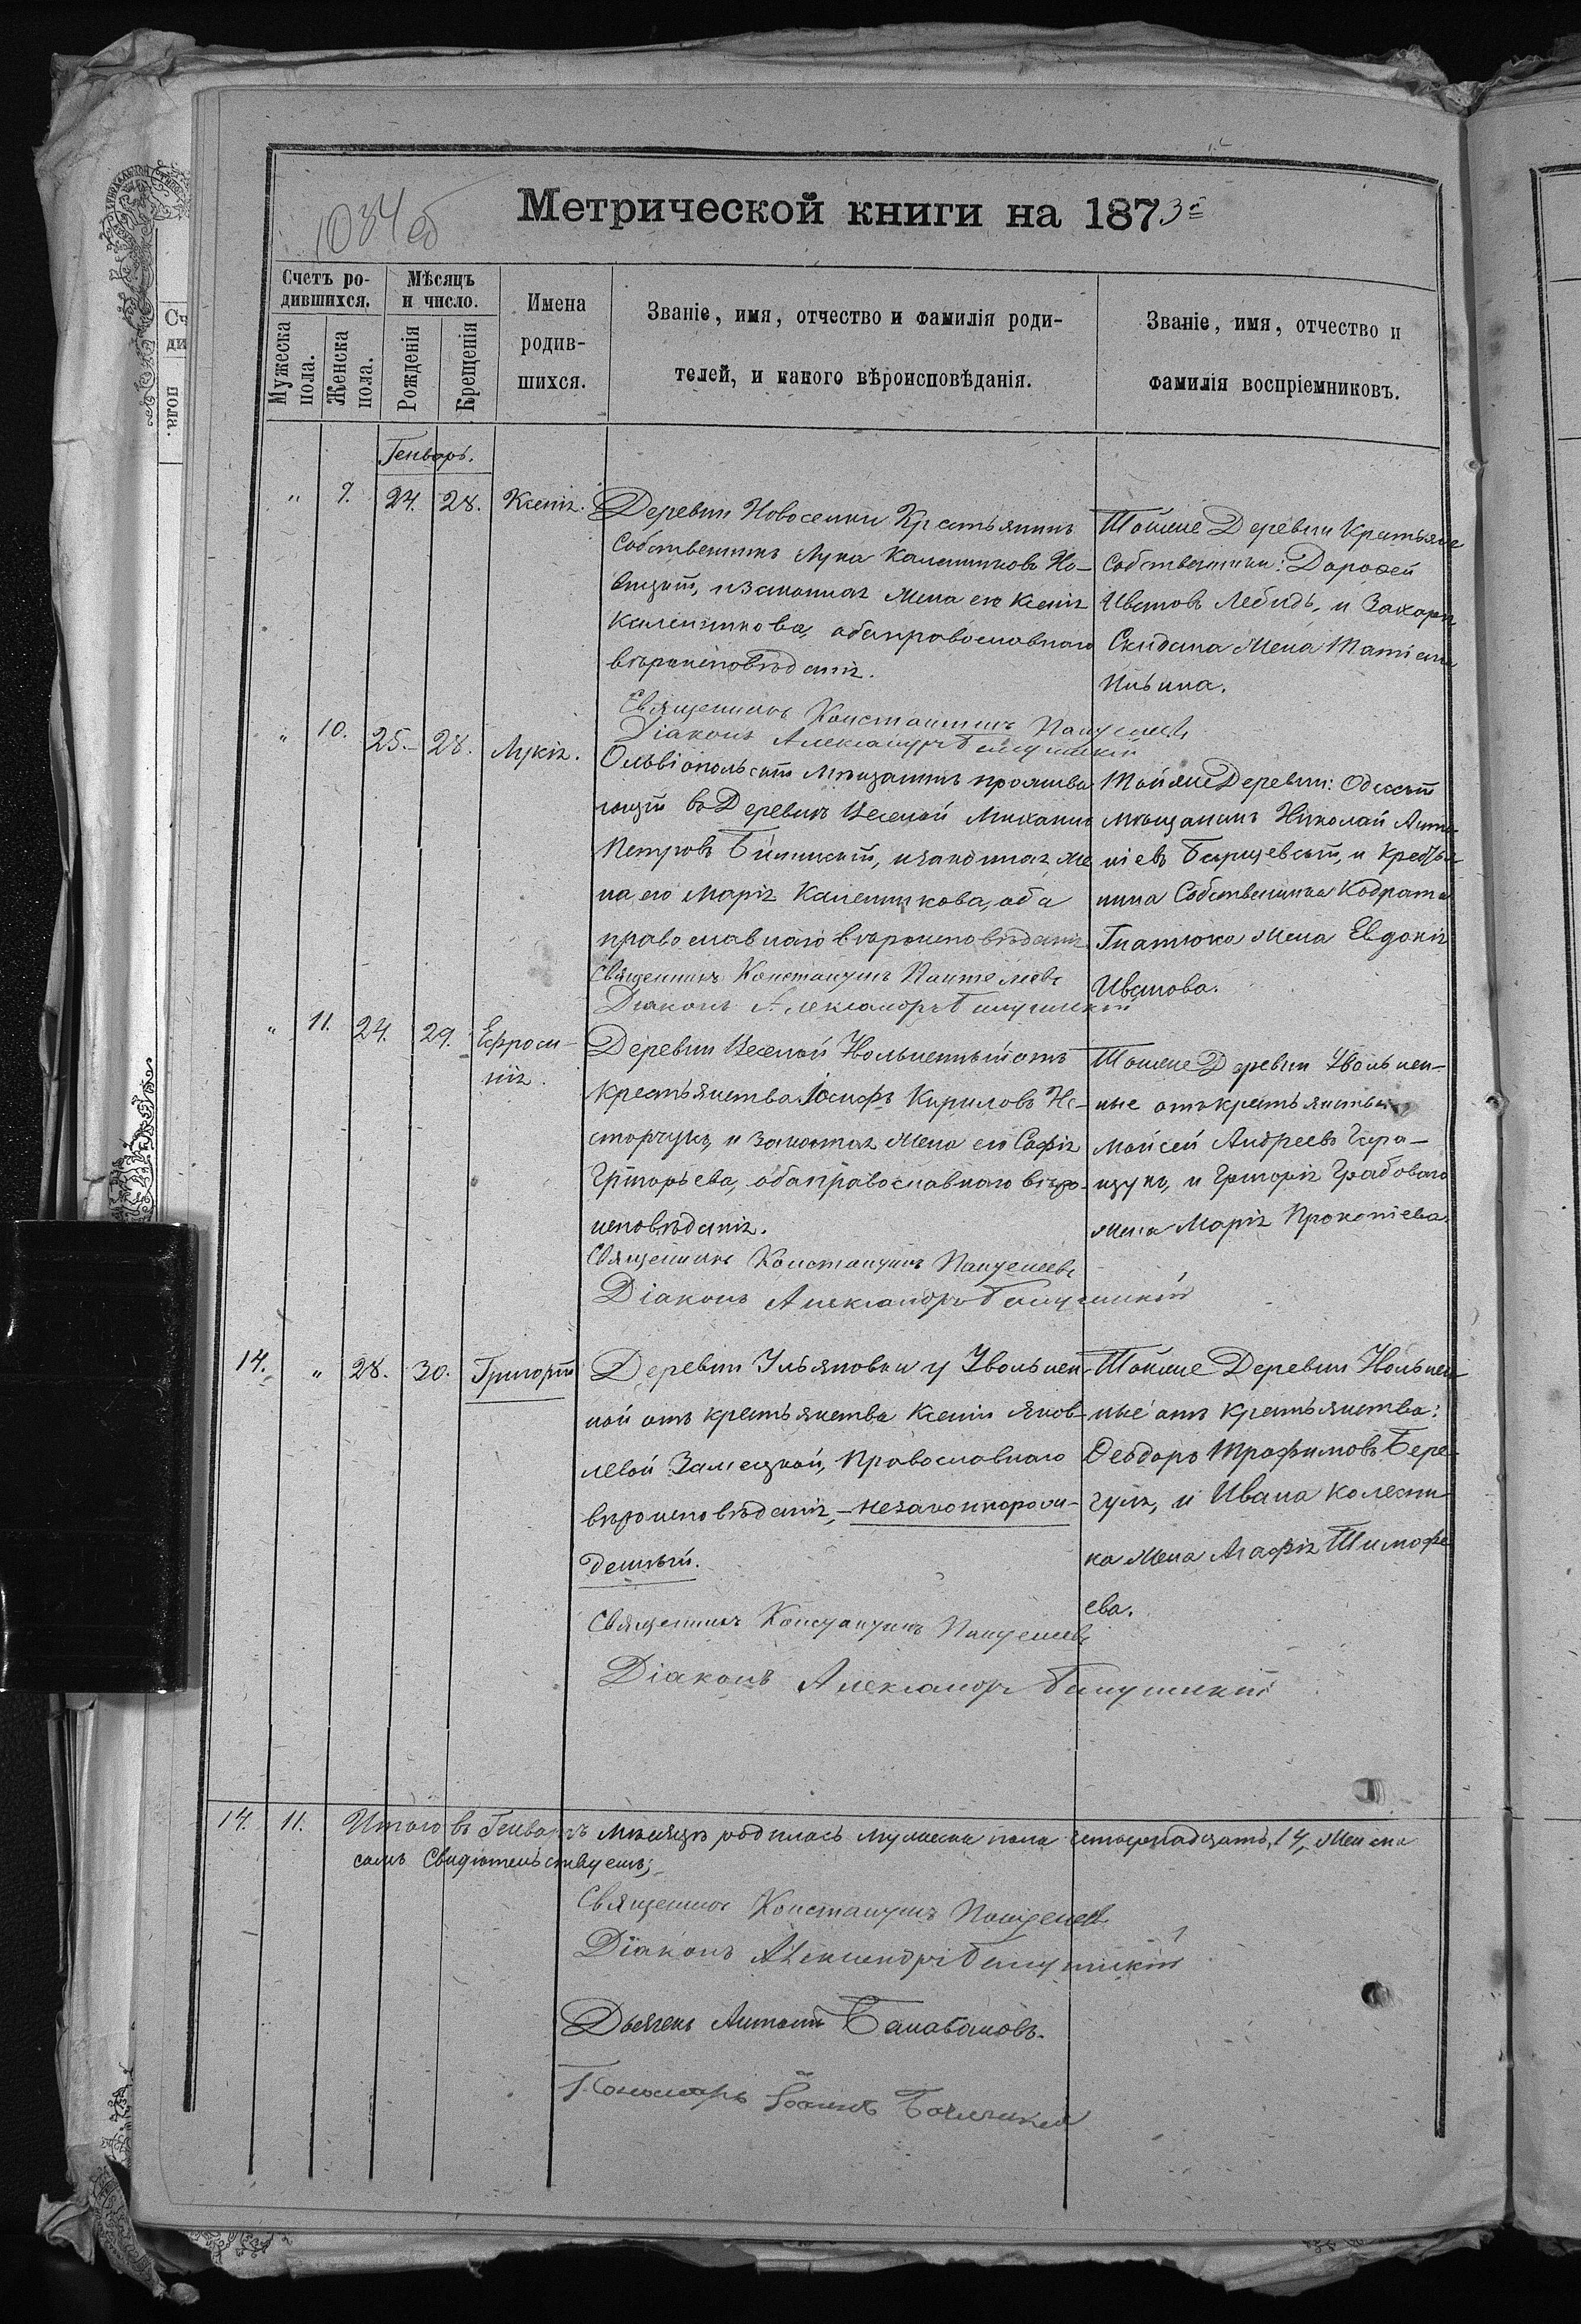 1034 об
Метрической книги на 1873 г
Счетъ ро-
дившихся.
Мужеска
пола.
Женска
пола.
Мѣсяцъ
и число.
Рожденія
Крещенія
Имена
родив-
шихся.
Званіе, имя, отчество и фамилія роди-
телей, и какого вѣроисповѣданія.
Званіе, имя, отчество и
фамилія воспріемниковъ.
Генварь.
" 9. 24. 28. Ксенія.
Деревни Новоселки Крестьянинъ
Собственникъ Лука Каленниковъ
и законная жена его Ксенія
Каленикова, оба православнаго
вѣроисповѣданія.
Священникъ Константинъ Пантелеевъ
Діаконъ Александръ
Тойже Деревни Крестьяне
Собственники: Дорофей
Ивановъ Лебидь, и Захарія
Скидана жена Татіана
Ильина.
" 10. 25. 28. Лукія.
Ольвіопольскій мѣщанинъ прожива
ющій въ Деревнѣ Веселой Михаилъ
Петровъ и законная же
на его Марія Каленикова, оба
православнаго вѣроисповѣданія
Священникъ Константинъ Пантелеевъ
Діаконъ Александръ
Тойже Деревни: Одесскій
мѣщанинъ Николай Анто
ніевъ Борщевскій, и Крестья
нина Собственника Кодрата
Гнатюка жена Евдокія
Иванова.
" 11. 24. 29. Ефроси-
нія.
Деревни Веселой Увольненный отъ
крестьянства Іосифъ Кириловъ Не-
сторчукъ, и законная жена его Софія
Григорьева, оба православнаго вѣро-
исповѣданія.
Священникъ Константинъ Пантелеевъ
Діаконъ Александръ
Тойже Деревни Увольнен-
ные отъ крестьянства
Мойсей Андреевъ Гера-
щукъ, и Григорія Грабоваго
жена Марія Прокопіева.
14. " 28. 30. Григорій
Деревни Ульяновки у Увольнен
ной отъ крестьянства Ксеніи Яков-
левой Залецкой, Православнаго
вѣроисповѣданія,- незаконнорож-
денный.
Священникъ Константинъ Пантелеевъ
Діаконъ Александръ
Тойже Деревни Увольнен
ные отъ крестьянства:
Феодоръ Трофимовъ Бере-
гуля, и Ивана Колесни-
ка жена Агафія Тимофе
ева.
14. 11. Итого въ Генварѣ мѣсяцѣ родилось мужеска пола четырнадцать, 14, женска
самъ Свидѣтельствуемъ;
Священникъ Константинъ Пантелеевъ
Діаконъ Александръ
Дьячекъ Антоній Балабановъ.
Пономарь Іоаннъ